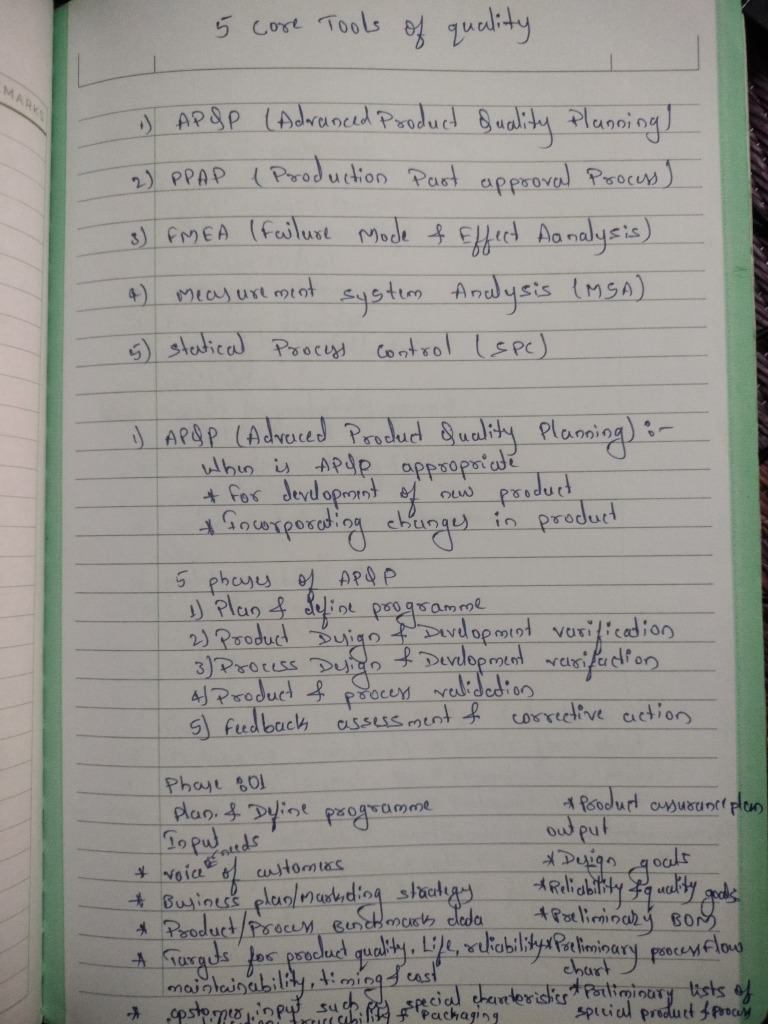 MARKS
5 Core Tools of quality
1) APQP (Advanced Product Quality Planning)
2) PPAP (Production Part approval Process)
3) FMEA (Failure Mode & Effect Aanalysis)
4) Measurement system Analysis (MSA)
5) Statical Process Control (SPC)
1) APQP (Advaced Product Quality Planning) :-
When is APQP appropriate
* For development of new product
* Incorporating changes in product
5 phases of APQP
1) Plan & define programme
2) Product Design & Development varification
3) Process Design & Development varifaction
4) Product & process validation
5) Feedback assessment & corrective action
Phase :01
Plan. & Define programme
Input
* voice & needs of customers
* Business plan/Marketing strategy
* Product/Process Benchmark data
* Targets for product quality, Life, reliability
maintainability, timing & cost
* input such as special charcteristics
& Packaging
* Product assurance plan
output
* Design goals
* Reliability & quality goals
* Preliminary BOM
* Preliminary process flow
chart
* Preliminary lists of
special product & process